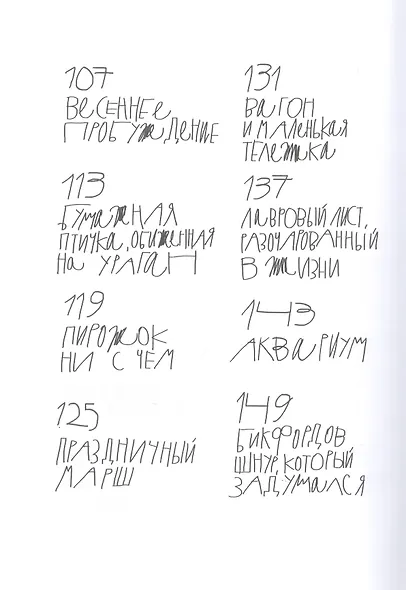 107
Весеннее
пробуждение
113
Бумажная
птичка, обиженная
на ураган
119
Пирожок
ни с чем
125
Праздничный
марш
131
Вагон
и маленькая
тележка
137
Лавровый лист,
разочарованный
в жизни
143
Аквариум
149
Бикфордов
шнур, который
задумался